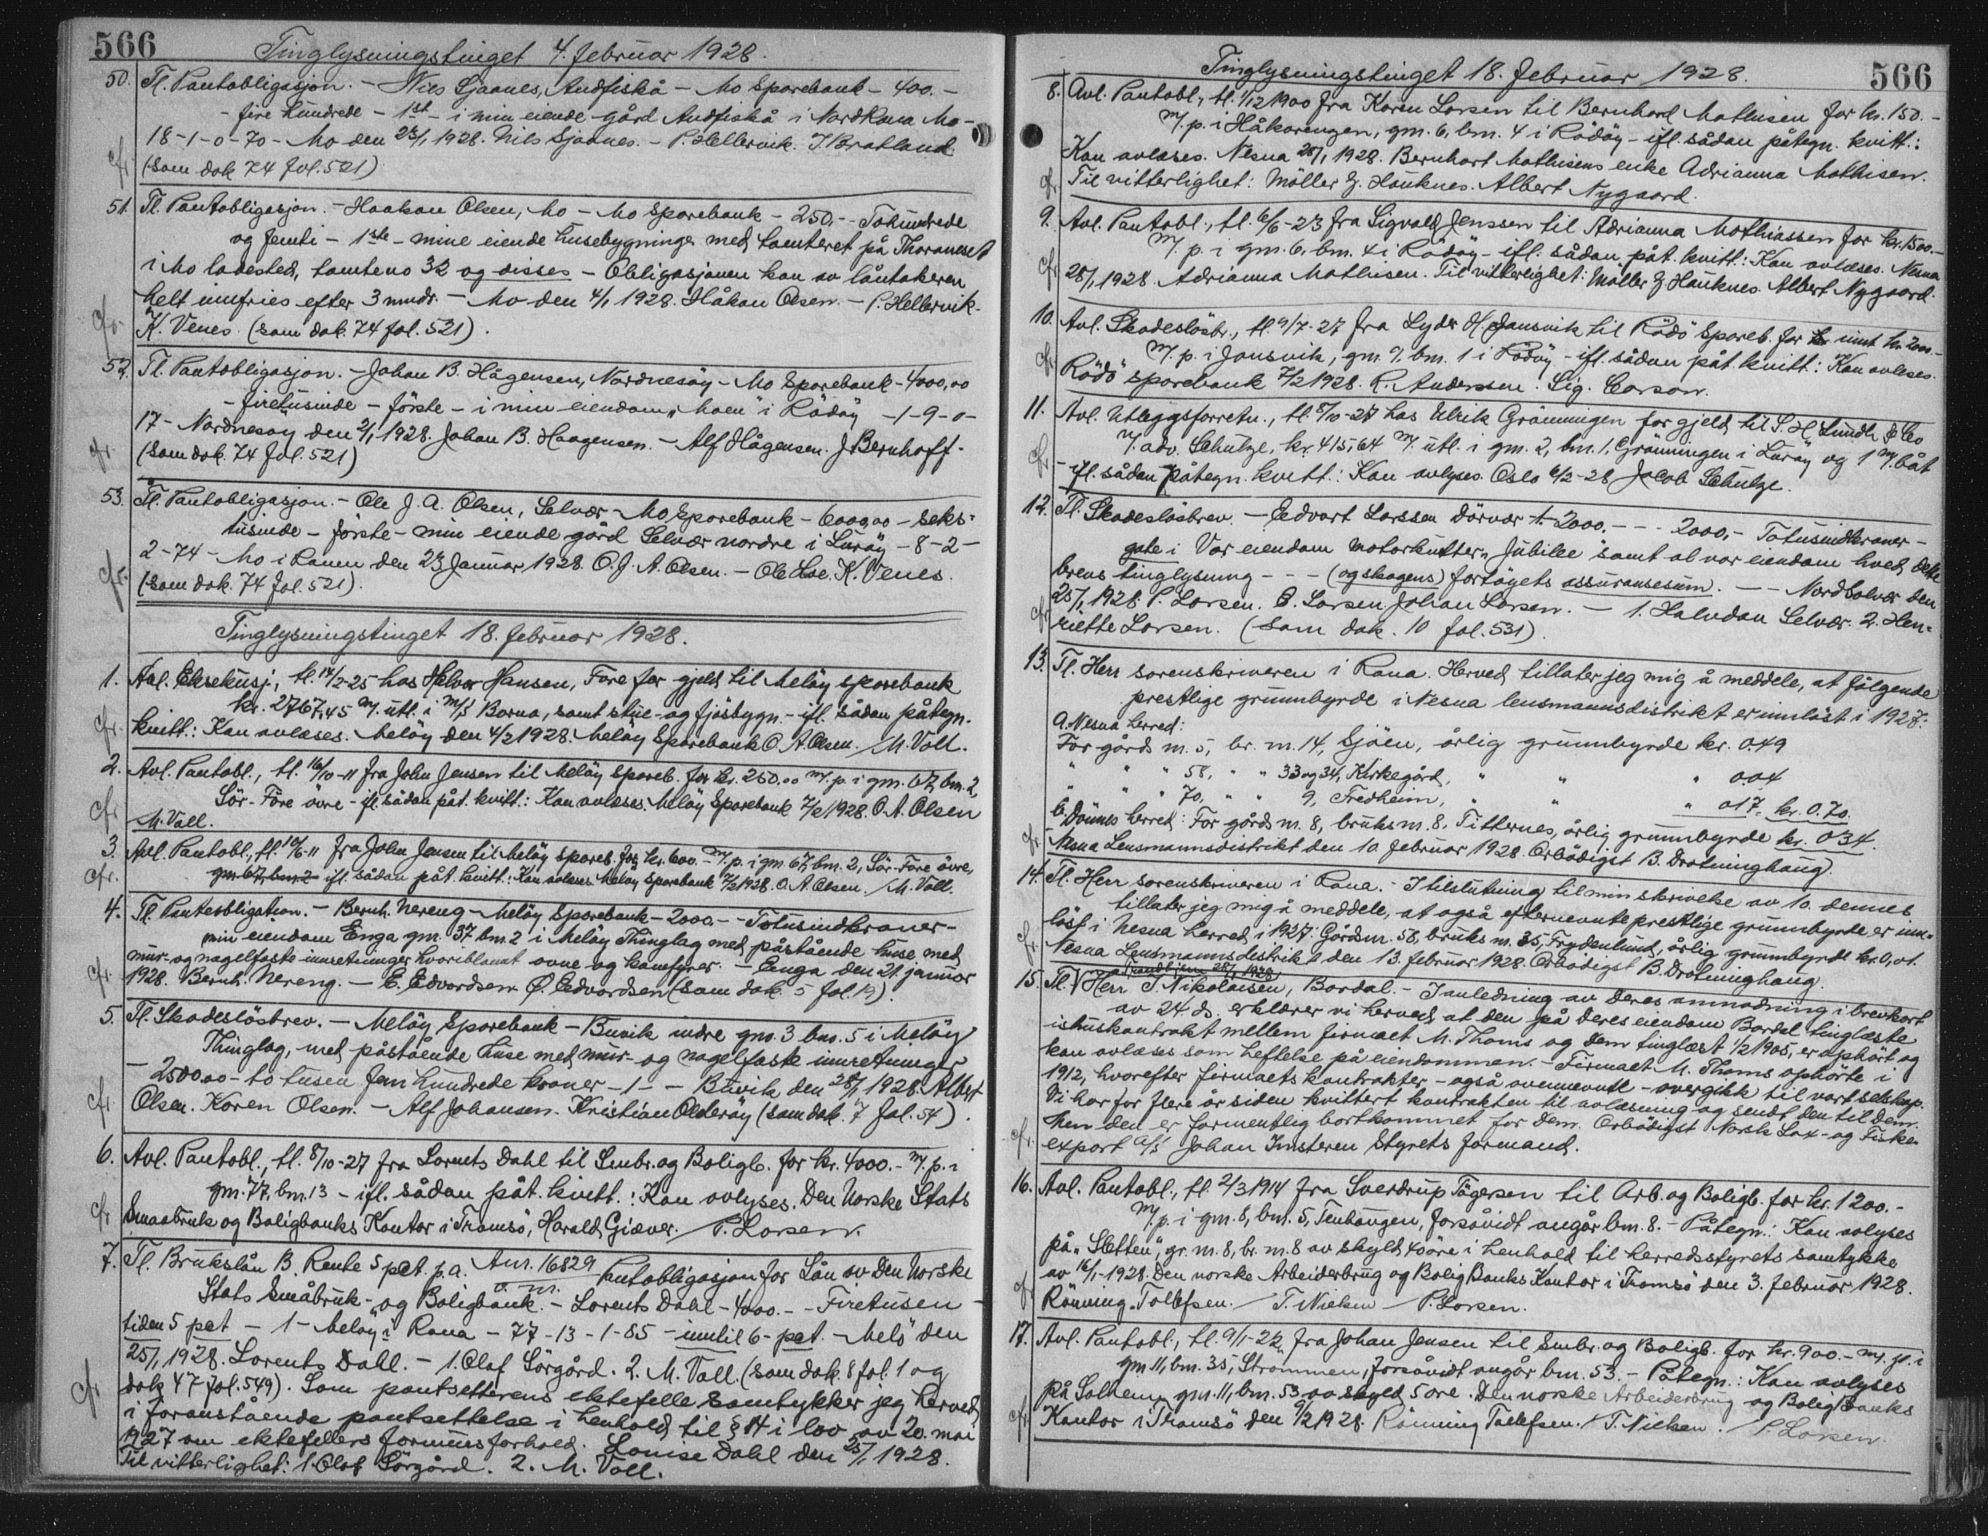 566
Tinglysningstinget 4. februar 1928.
50. Tl. Pantobligasjon. - Nils Sjaanes, Andfiskå - Mo Sparebank - 400. -
- fire hundrede - 1st - i min eiende gård Andfiskå i Nord Rana Mo -
18-1-0-70 - Mo den 23/1 1928. Nils Sjaanes. - P. Hellervik. J. Bratland.
cfr (Sam dok 74 fol. 521)
51. Tl. Pantobligasjon. - Haakon Olsen, Mo - Mo Sparebank - 250. - Tohundrede
og femti - 1ste - mine eiende husebygninger med tomteret på Thoraneset
i Mo ladested, tomteno 32 og disses - Obligasjonen kan av låntakeren
helt innfries efter 3 mndr. - Mo den 4/1 1928. Håkon Olsen. - P. Hellervik.
cfr. K. Venes. (Sam dok. 74 fol. 521).
52. Tl. Pantobligasjon. - Johan B. Hågensen, Nordnesöy - Mo Sparebank - 4000,00
- firetusinde - förste - i min eiendom "Moen" i Rödöy - 1-9-0-
17 - Nordnesöy den 2/1 1928. Johan B. Haagensen. - Alf Hågensen. J. Bernhoff.
cfr. (Sam dok. 74 fol. 521)
53. Tl. Pantobligasjon. - Ole J. A. Olsen, Selvær - Mo Sparebank - 6000,00 - seks-
tusinde - förste - min eiende gård Selvær nordre i Luröy - 8-2-
2-74 - Mo i Ranen den 23 Januar 1928. O. J. A. Olsen. - Ole Loe. K. Venes.
cfr. (Sam dok. 74 fol. 521).
Tinglysningstinget 18. februar 1928.
1. Avl. Eksekusj, tl. 14/2-25 hos Helver Hansen, Fore for gjeld til Melöy sparebank
kr. 2767,45 m/ utl. i m/s Borna, samt stue- og fjösbygn. - ifl. sådan påtegn.
cfr. kvitt.: Kan avlæses. Melöy den 4/2 1928. Melöy Sparebank O. A. Olsen. M. Voll.
2. Avl. Pantobl., tl. 16/10-11 fra John Jensen til Melöy Spareb. for kr. 250.00 m/ p. i gm. 67, bm. 2,
Sör-Fore övre - ifl. sådan påt. kvitt.: Kan avlæses. Melöy Sparebank 7/2 1928. O. A. Olsen
cfr M. Voll.
3. Avl. Pantobl., tl. 10/6-11 fra John Jensen til Melöy Spareb. for kr. 600. - m/ p. i gm 67, bm. 2, Sör-Fore övre,
cfr. gm. 67, bm. 2 ifl. sådan påt. kvitt.: Kan avlæses. Melöy Sparebank 7/2 1928. O. A. Olsen. / M. Voll.
4. Tl. Panteobligation. - Bernh. Nereng - Melöy Sparebank - 2000. - - Totusindkroner -
min eiendom Enga gm. 37 bm. 2 i Melöy Thinglag med påstående huse med
mur- og nagelfaste innretninger hvoriblandt ovne og komfyrer. - Enga den 21 januar
cfr. 1928. Bernh. Nereng. - E. Edvardsen Ö. Edvardsen (Sam dok. 5 fol. 19).
5. Tl. Skadeslösbrev. - Melöy Sparebank - Buvik indre gno. 3 bno. 5 i Melöy
Thinglag, med påstående huse med mur- og nagelfaste innretninger
- 2500.00 - to tusen fem hundrede kroner - 1 - - Buvik den 28/1 1928. Albert
cfr. Olsen. Karen Olsen. - Alf Johansen. Kristian Olderöy (Sam dok. 7 fol. 54).
6. Avl. Pantobl., tl. 8/10-27 fra Lorents Dahl til Smbr. og Boligb. for kr. 4000. - m/ p. i
gm. 77, bm. 13 - ifl. sådan påt. kvitt.: Kan avlyses. Den Norske Stats
cfr Smaabruk og Boligbanks Kontor i Tromsö, Harald Giæver. / P. Larsen.
7. Tl. Brukslån B. Rente 5 pct. p. a. Anr. 16829 Pantobligasjon for Lån av Den Norske
Stats Småbruk- og Boligbank. - Lorents Dahl - 4000. - - Firetusen -
tiden 5 pct - 1 - Melöy i Rana - 77-13-1-85 - inntil 6 - pct. - Melö den
25/1 1928. Lorents Dahl. - 1. Olaf Sörgård. 2. M. Voll. (Sam dok. 8 fol. 1 og
cfr dok 47 fol. 549). Som pantsetterens ektefelle samtykker jeg herved
i foranstående pantsettelse i henhold til § 14 i lov av 20. mai
1927 om ektefellers formuesforhold. Louise Dahl den 25/1 1928.
Til vitterlighet: 1. Olaf Sörgård. 2. M. Voll.
566
Tinglysningstinget 18. februar 1928.
8. Avl. Pantobl., tl. 1/12 1900 fra Karen Larsen til Bernhard Mathisen for kr. 150. -
m/ p. i Håkorengen, gm. 6, bm. 4 i Rödöy - ifl. sådan påtegn. kvitt.:
Kan avlæses. Nesna 28/1 1928. Bernhart Mathisens enke Adrianna Mathisen.
cfr Til vitterlighet: Möller Z. Hauknes. Albert Nygaard.
9. Avl. Pantobl., tl. 6/6-23 fra Sigvald Jenssen til Adrianna Mathiassen for kr. 1500. -
m/ p. i gm. 6, bm. 4 i Rödöy - ifl. sådan påt. kvitt.: Kan avlæses. Nesna
cfr 28/1 1928. Adrianna Mathisen. Til vitterlighet: Möller Z. Hauknes. Albert Nygaard.
10. Avl. Skadeslösbr., tl. 9/7-27 fra Lyder H. Jansvik til Rödö Spareb. for inntil kr. 2000 -
m/ p. i Jansvik, gm. 9, bm. 1 i Rödöy - ifl. sådan påt. kvitt: Kan avleses.
cfr Rödö sparebank 7/2 1928. R. Anderssen. Sig. Carson.
11. Avl. Utleggsforretn., tl. 8/10-27 hos Ulrik Grönningen for gjeld til S. H. Lundh & Co
v/ adv. Schutze, kr. 415,64 m/ utl. i gm. 2, bm. 1, Grönningen i Luröy og 1 m/ båt
cfr - ifl. sådan påtegn. kvitt: Kan avlyses. Oslo 6/2-28 Jacob Schutze.
12. Tl. Skadeslösbrev. - Edvart Larssen Dörvær - 2000. - - - 2000, - Totusindkroner -
gate i Vor eiendom Motorkutter "Jubilee" samt al vor eiendom hved dette
brevs tinglysning - - - (og skogens) fortöyets assuransesum. - - Nord Solvær den
25/1 1928. P. Larsen. O. Larsen Johan Larsen. - 1. Halvdan Selvær. 2. Hen-
cfr riette Larsen. (Sam dok. 10 fol. 531).
13. Tl. Herr sorenskriveren i Rana. Herved tillater jeg mig å meddele, at fölgende
prestlige grunnbyrde i Nesna lensmannsdistrikt er innlöst i 1927.
a. Nesna herred:
For gårds m. 5, br. m. 14, Sjöen, årlig grunnbyrde kr. 0.49
" " " 58, " " 33 og 34, Kirkegård, " " " 0.04
" " " 70, " " 9, Fredheim, " " " 0.17. kr. 0.70.
b. Dönnes herred: For gårds m. 8, bruks m. 8. Titternes, årlig grunnbyrde kr. 0.34.
cfr Nesna Lensmannsdistrikt den 10 februar 1928. Ærbödigst B. Drotninghaug.
14. Tl. Herr sorenskriveren i Rana. - I tilslutning til min skrivelse av 10. dennes
tillater jeg mig å meddele, at også efternevnte prestlige grunnbyrde er inn-
löst i Nesna herred i 1927: Gårds m. 58, bruks m. 35, Frydenlund, årlig grunnbyrde kr. 0,01.
cfr Nesna Lensmannsdistrikt den 13. februar 1928. Ærbödigst B. Drotninghaug.
Trondhjem 28/1 1928
15. Tl. V Herr J. Nikolaisen, Bardal. - I anledning av Deres anmodning i brevkort
av 24 ds. erklærer vi herved at den på Deres eiendom Bardal tinglæste
ishuskontrakt mellem firmaet M. Thams og dem tinglæst 1/2 1905, er ophört og
kan avlæses som heftelse på eiendommen. - Firmaet M. Thams ophörte i
1912, hvorefter firmaets kontrakter - også ovennevnte - overgikk til vart selskap.
Vi har for flere år siden kvittert kontrakten til avlæsning og sendt den til Dem.
Men den er formentlig bortkommet for Dem. Ærbödigst Norsk Lax- og Fiske-
cfr. export A/S Johan Imsteren Styrets formand.
16. Avl. Pantobl., tl. 2/3 1914 fra Sverdrup Tögersen til Arb. og Boligb. for kr. 1200. -
m/ p. i gm. 8, bm. 5, Tenhaugen, forsåvidt angår bm. 8. - Påtegn: Kan avlyses
på "Sletten", gr. m. 8, br. m. 8 av skyld 40 öre i henhold til herredsstyrets samtykke
av 16/1-1928. Den norske Arbeiderbrug og Bolig Banks Kontor i Tromsö den 3. februar 1928.
cfr Rönning. Tollefsen. / T. Nielsen / P. Larsen.
17. Avl. Pantobl., tl. 9/1-22, fra Johan Jensen til Smbr. og Boligb. for kr. 900. - m/ p. i
gm. 11, bm. 35, Strommen, forsåvidt angår bm. 53. - Påtegn.: Kan avlyses
på Solhem, gm. 11, bm. 53 av skyld 5 öre. Den norske Arbeiderbrug og Bolig Banks
cfr. Kontor i Tromsö den 9/2 1928. Rönning Tollefsen. / T. Nielsen. / P. Larsen.